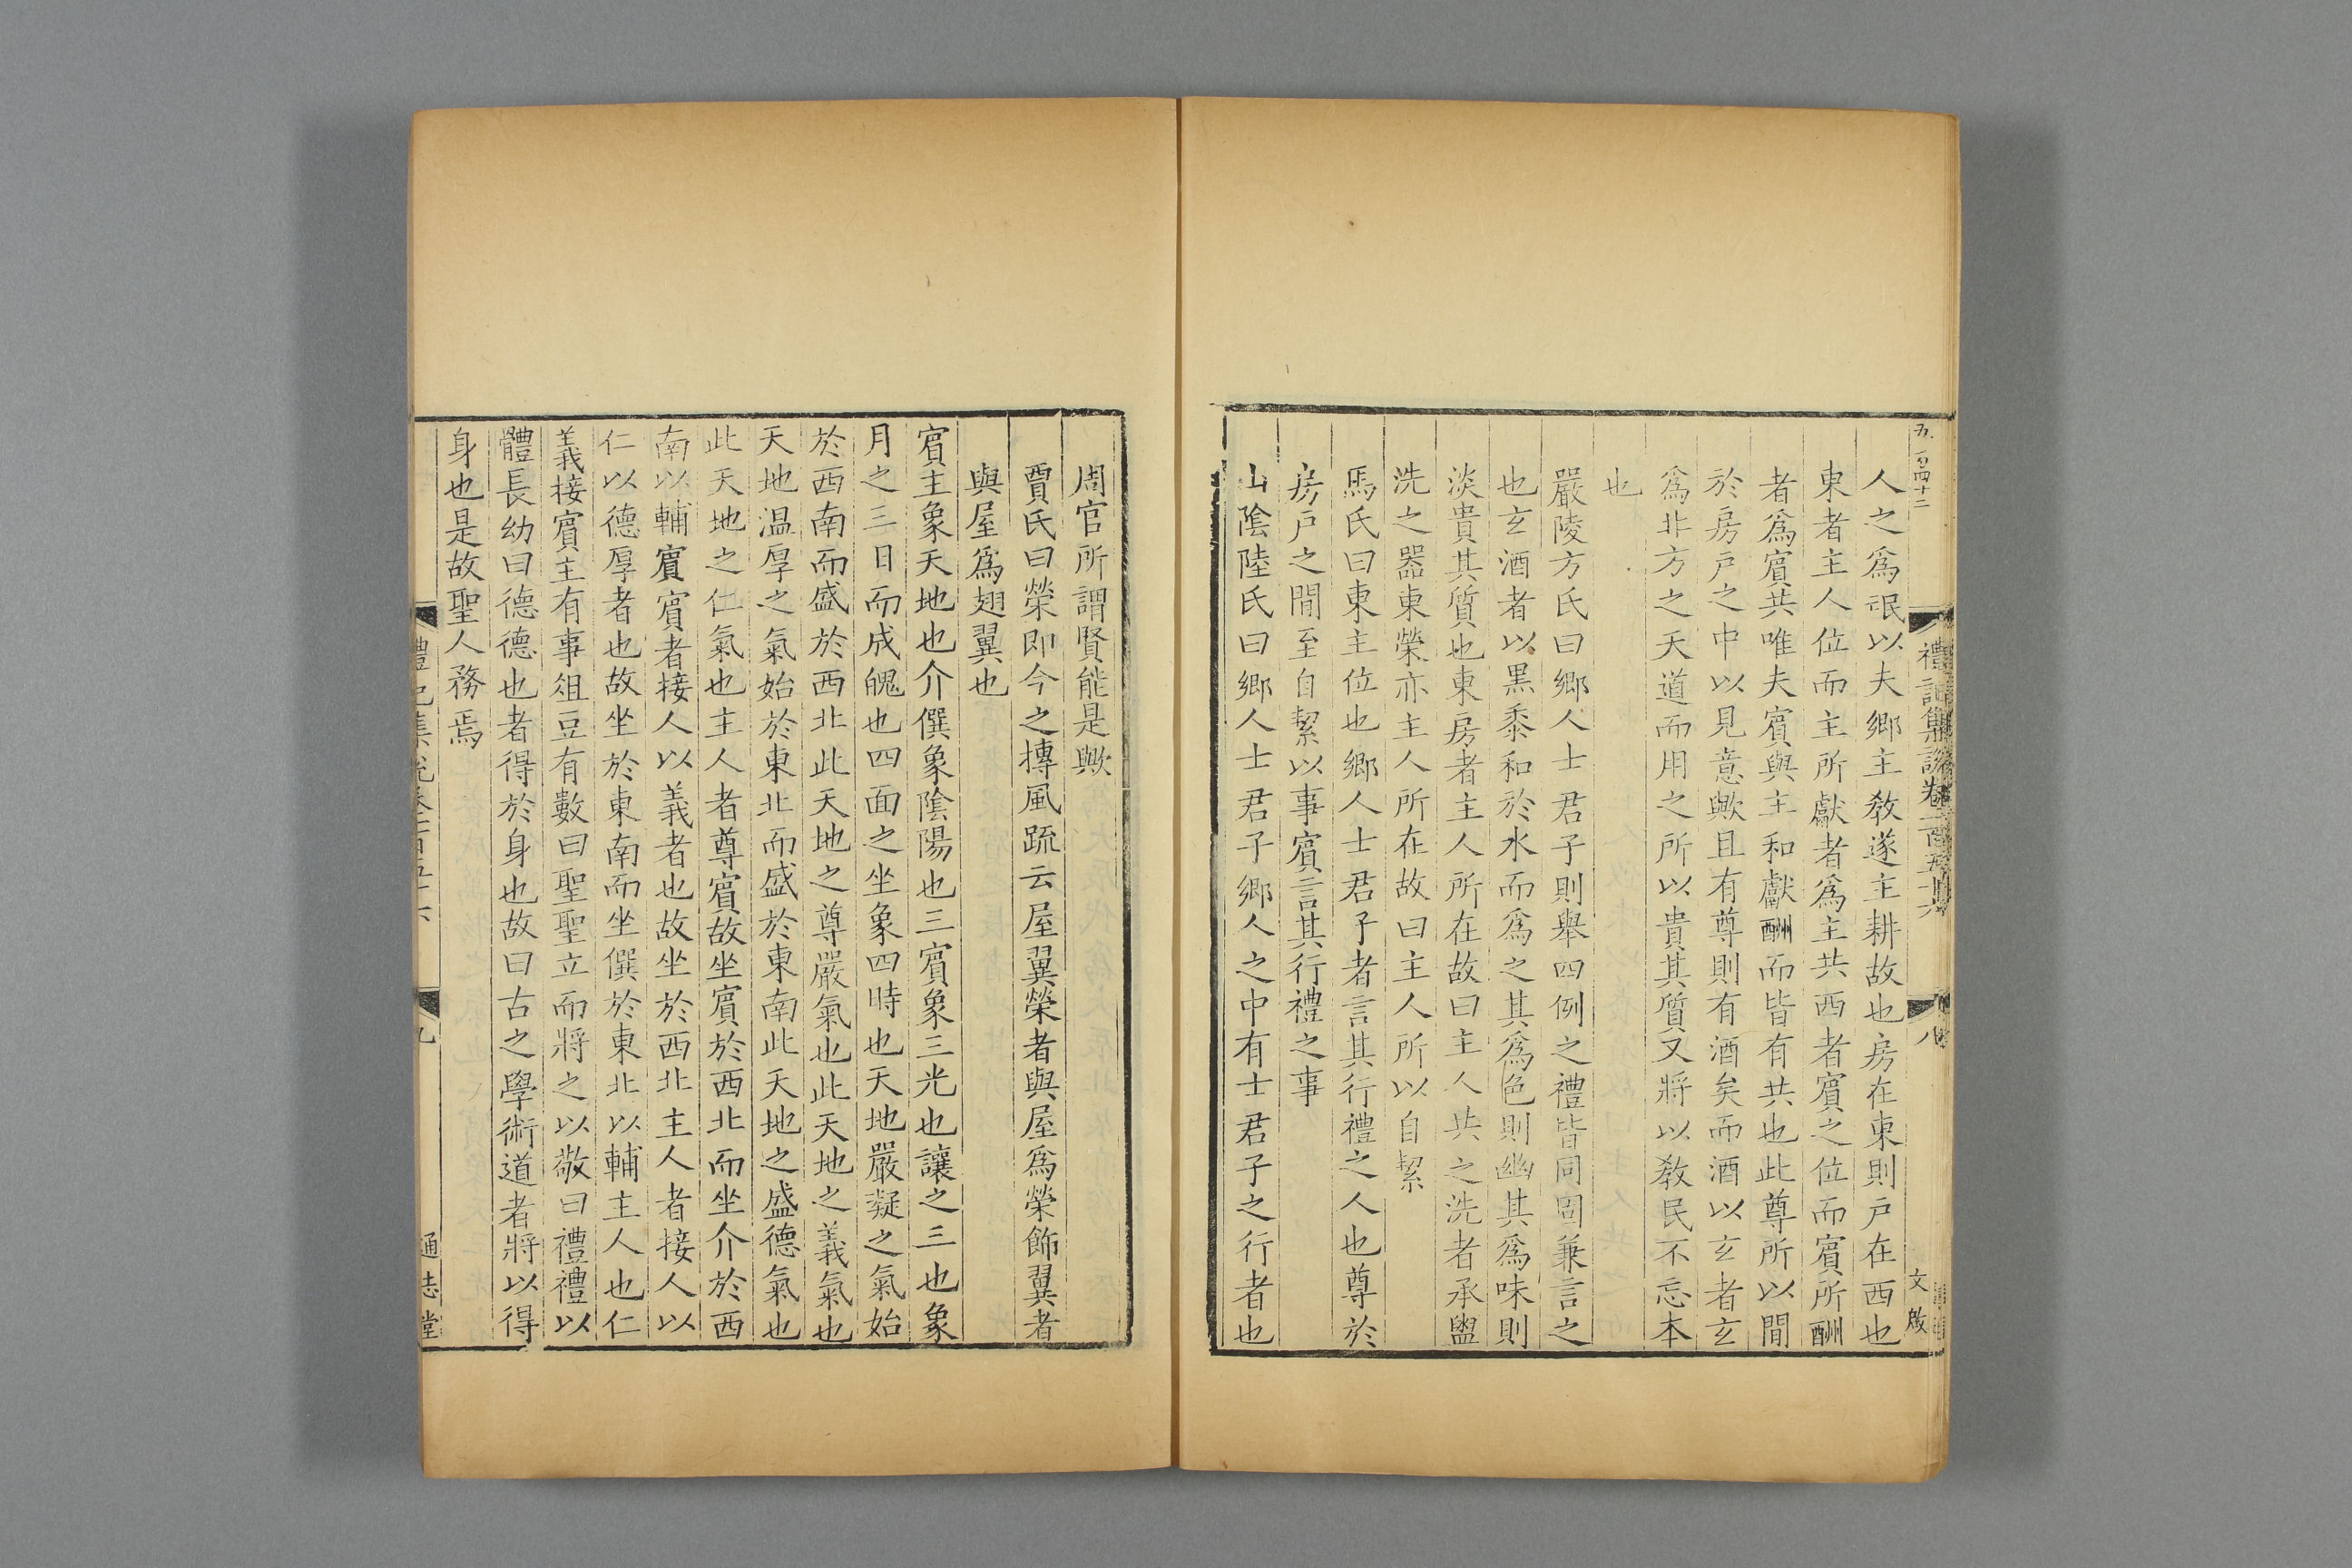 五百四十二
禮記集說卷一百五十六
八
文啟
人之爲氓以夫鄉主教遂主耕故也房在東則戶在西也
東者主人位而主所獻者爲主共西者賓之位而賓所酬
者爲賓共唯夫賓與主和獻酬而皆有共也此尊所以間
於房戶之中以見意歟且有尊則有酒矣而酒以玄者玄
爲北方之天道而用之所以貴其質又將以教民不忘本
也
嚴陵方氏曰鄉人士君子則舉四例之禮皆同固兼言之
也玄酒者以黑黍和於水而爲之其爲色則幽其爲味則
淡貴其質也東房者主人所在故曰主人共之洗者承盥
洗之器東榮亦主人所在故曰主人所以自絜
馬氏曰東主位也鄉人士君子者言其行禮之人也尊於
房戶之間至自絜以事賓言其行禮之事
山陰陸氏曰鄉人士君子鄉人之中有士君子之行者也
周官所謂賢能是歟
賈氏曰榮即今之摶風疏云屋翼榮者與屋爲榮飾翼者
與屋爲翅翼也
賓主象天地也介僎象陰陽也三賓象三光也讓之三也象
月之三日而成魄也四面之坐象四時也天地嚴凝之氣始
於西南而盛於西北此天地之尊嚴氣也此天地之義氣也
天地温厚之氣始於東北而盛於東南此天地之盛德氣也
此天地之仁氣也主人者尊賓故坐賓於西北而坐介於西
南以輔賓賓者接人以義者也故坐於西北主人者接人以
仁以德厚者也故坐於東南而坐僎於東北以輔主人也仁
義接賓主有事俎豆有數曰聖聖立而將之以敬曰禮禮以
體長幼曰德德也者得於身也故曰古之學術道者將以得
身也是故聖人務焉
禮記集說卷一百五十六
九
通志堂